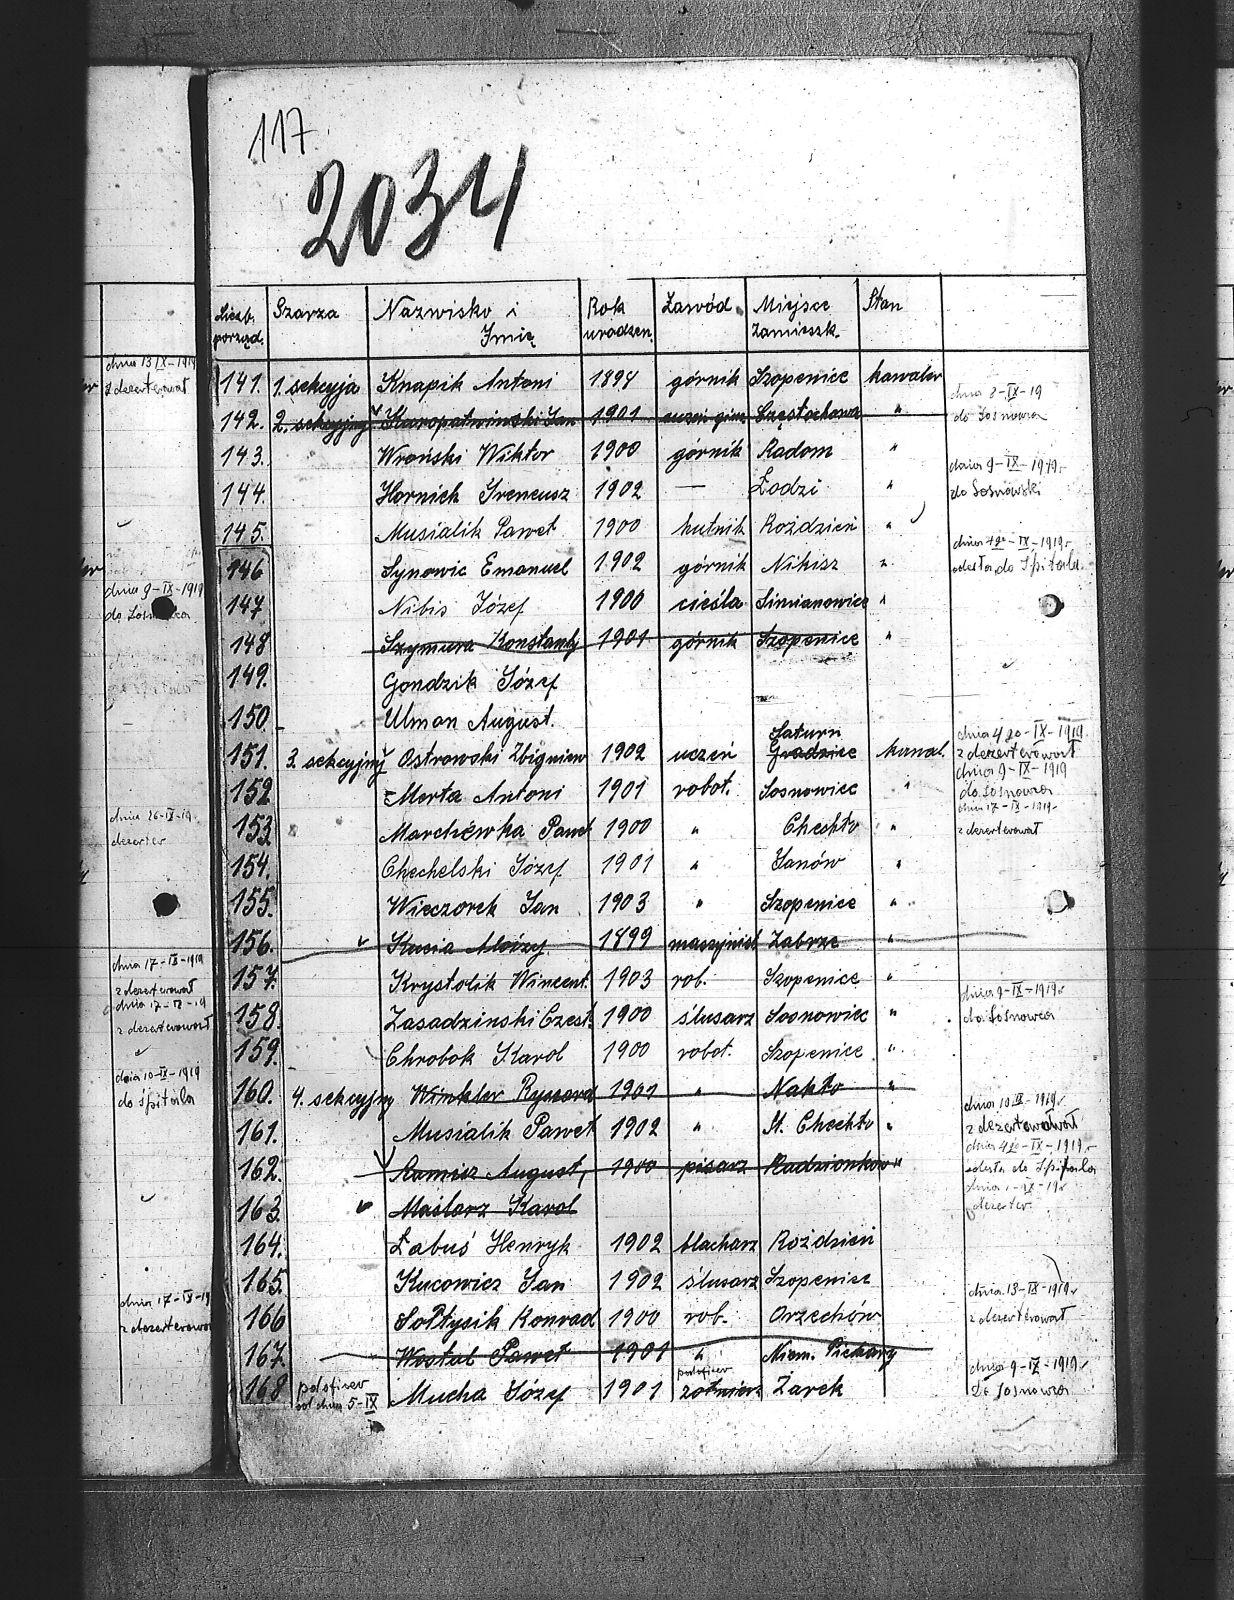 117.
2034
Liczb. porząd. Szarża Nazwisko i Imię Rok urodzen. Zawód Miejsce zamieszk. Stan
dnia 13 IX-1919
z dezerterował
141. 1. sekcyja Knapik Antoni 1894 górnik Szopenice kawaler
dnia 8-IX-19
142. 2. sekcyjny Kuropatwinski Jan 1901 uczeń gimz. Częstochowa " do Sosnowca
143. Wroński Wiktor 1900 górnik Radom "
dnia 9-IX-1919r.
144. Hornich Ireneusz 1902 — Łodzi " do Sosnowski
145. Musialik Paweł 1900 hutnik Roździeń "
dnia 12-IX-1919r.
146 Synowic Emanuel 1902 górnik Nikisz " odesła do Szpitala
dnia 9-IX-1919
147 Nibis Józef 1900 cieśla Simianowice "
do Sosnowca
148 Szymura Konstanty 1901 górnik Szopenice "
149. Gondzik Józef
150. Ulman August.
Saturn
dnia 4 go-IX-1919
151. 3. sekcyjny Ostrowski Zbigniew 1902 uczeń Gradzice kawal. z dezerterował
dnia 9-IX-1919
152. Merta Antoni 1901 robot. Sosnowiec " do Sosnowca
dnia 17-IX-1919r.
153 Marchewka Paweł 1900 " Chechło " z dezerterował
dnia 26-IX-19.
dezerter
154. Chechelski Józef 1901 " Janów "
155. Wieczorek Jan 1903 " Szopenice "
156. Kucia Alojzy 1899 maszynist Zabrze "
dnia 17-IX-1919
157. Krystolik Wincent. 1903 rob. Szopenice "
z dezerterował
dnia 17-IX-19
dnia 9-IX-1919r.
158. Zasadzinski Czest. 1900 ślusarz Sosnowiec " do Sosnowca
z dezerterował
159. Chrobok Karol 1900 robot. Szopenice "
dnia 10-IX-1919
160. 4. sekcyjny Winkler Ryszard 1901 " Nakło "
do śpitala
dnia 10 IX-1919r.
161. Musialik Paweł 1902 " St. Chechło " z dezerterował
dnia 4go-IX-1919r.
162. Kamisz August, 1900 pisarz Radzionków " odesła do Szpitala
dnia 1-IX-19r
163. Maślarz Karol dezerter.
164. Łabuś Henryk 1902 blacharz Roździeń
165. Kucowicz Jan 1902 ślusarz Szopenice
dnia 17-IX-19
dnia 13-IX-1919r.
166 Sołtysik Konrad 1900 rob. Orzechów z dezerterował
z dezerterował
167. Wostal Paweł 1901 " Niem. Piekary
dnia 9-IX-1919r
168 podoficer od dnia 5-IX Mucha Józef 1901 podoficer żołnierz Żarek do Sosnowca